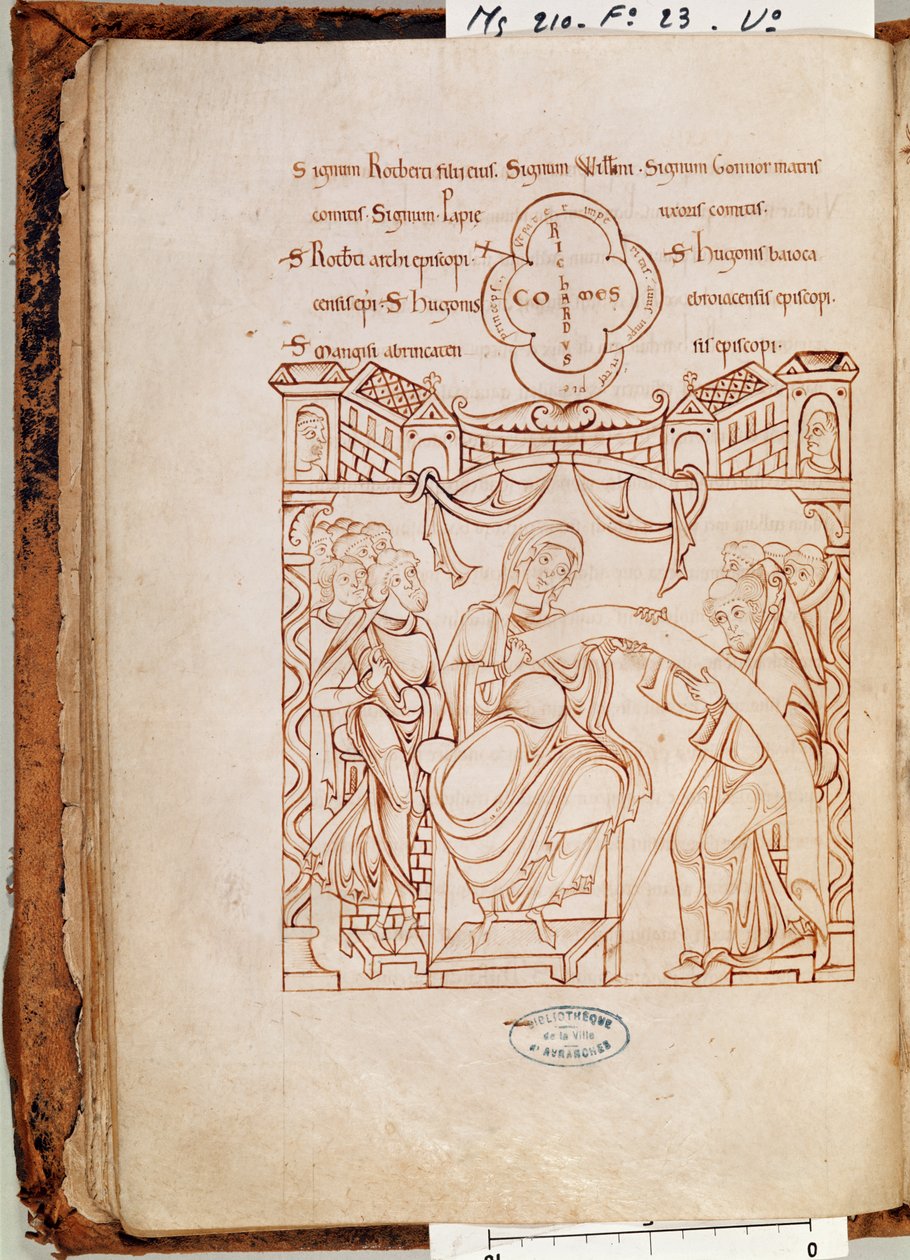 Ms 210 - Fº 23 . Vº
Signum Rotberti filii eius. Signum Willmi · Signum Gonnor matris
comitis · Signum · Papię uxoris comitis ·
S Rotbti archi episcopi · S hugonis baioca
censis epi · S hugonis ebroiacensis episcopi ·
S mangisi abrincaten sis episcopi ·
RIChARDVS
COMES
princeps
BIBLIOTHÈQUE
de la Ville
d'AVRANCHES
0